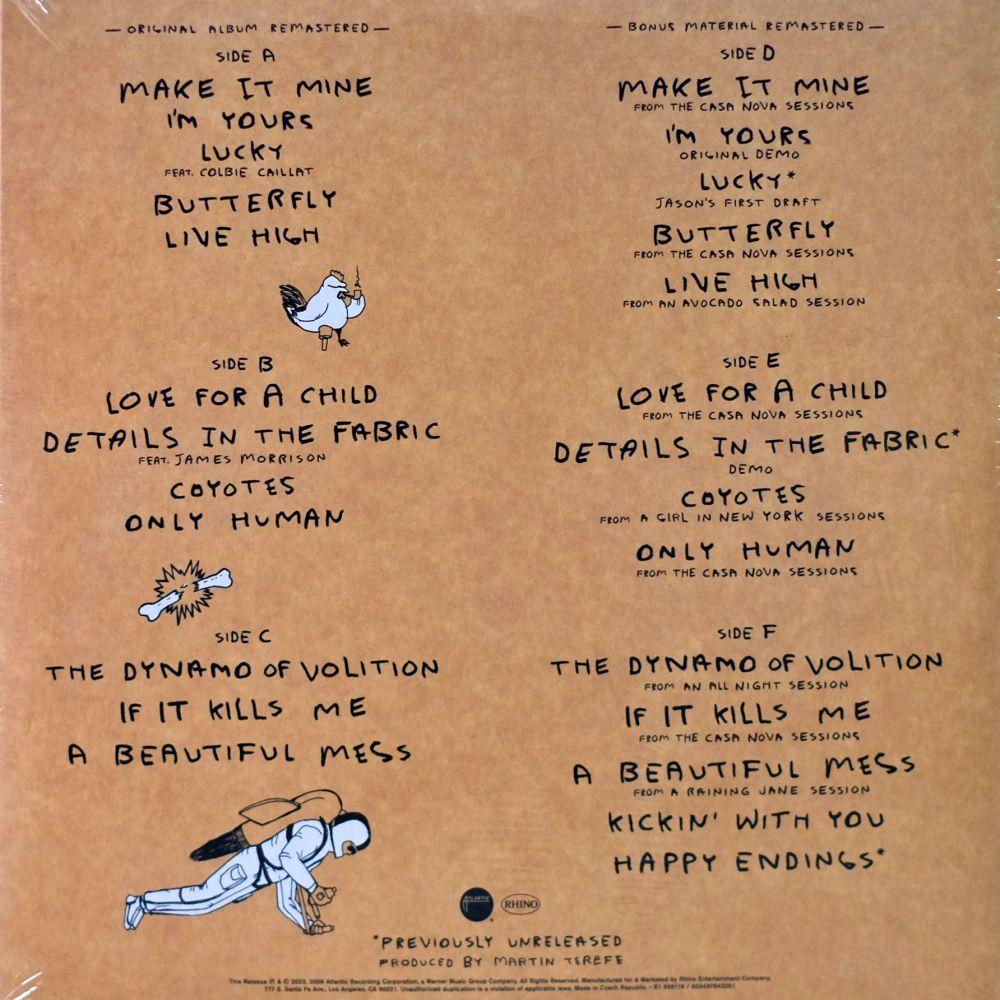 — ORIGINAL ALBUM REMASTERED —
SIDE A
MAKE IT MINE
I'M YOURS
LUCKY
FEAT. COLBIE CAILLAT
BUTTERFLY
LIVE HIGH
SIDE B
LOVE FOR A CHILD
DETAILS IN THE FABRIC
FEAT. JAMES MORRISON
COYOTES
ONLY HUMAN
SIDE C
THE DYNAMO OF VOLITION
IF IT KILLS ME
A BEAUTIFUL MESS
— BONUS MATERIAL REMASTERED —
SIDE D
MAKE IT MINE
FROM THE CASA NOVA SESSIONS
I'M YOURS
ORIGINAL DEMO
LUCKY*
JASON'S FIRST DRAFT
BUTTERFLY
FROM THE CASA NOVA SESSIONS
LIVE HIGH
FROM AN AVOCADO SALAD SESSION
SIDE E
LOVE FOR A CHILD
FROM THE CASA NOVA SESSIONS
DETAILS IN THE FABRIC*
DEMO
COYOTES
FROM A GIRL IN NEW YORK SESSIONS
ONLY HUMAN
FROM THE CASA NOVA SESSIONS
SIDE F
THE DYNAMO OF VOLITION
FROM AN ALL NIGHT SESSION
IF IT KILLS ME
FROM THE CASA NOVA SESSIONS
A BEAUTIFUL MESS
FROM A RAINING JANE SESSION
KICKIN' WITH YOU
HAPPY ENDINGS*
ATLANTIC
RHINO
*PREVIOUSLY UNRELEASED
PRODUCED BY MARTIN TEREFE
This Reissue ℗ & © 2023, 2008 Atlantic Recording Corporation, a Warner Music Group Company. All Rights Reserved. Manufactured for & Marketed by Rhino Entertainment Company,
777 S. Santa Fe Ave., Los Angeles, CA 90021. Unauthorized duplication is a violation of applicable laws. Made in Czech Republic.